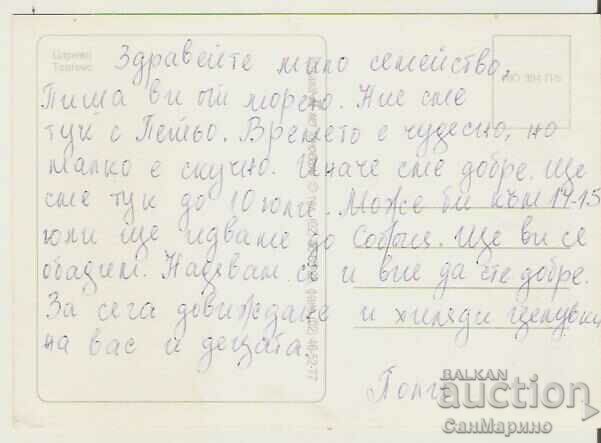 Царево
Здравейте мило семейство,
Пиша ви от морето. Ние сме
тук с Петьо. Времето е чудесно, но
малко е скучно. Иначе сме добре. Ще
сме тук до 10 юли. Може би към 14-15
юли ще идваме до София. Ще ви се
обадим. Надявам се и вие да сте добре.
За сега довиждане и хиляди целувки
на вас и децата.
BALKAN
auction
СанМарино